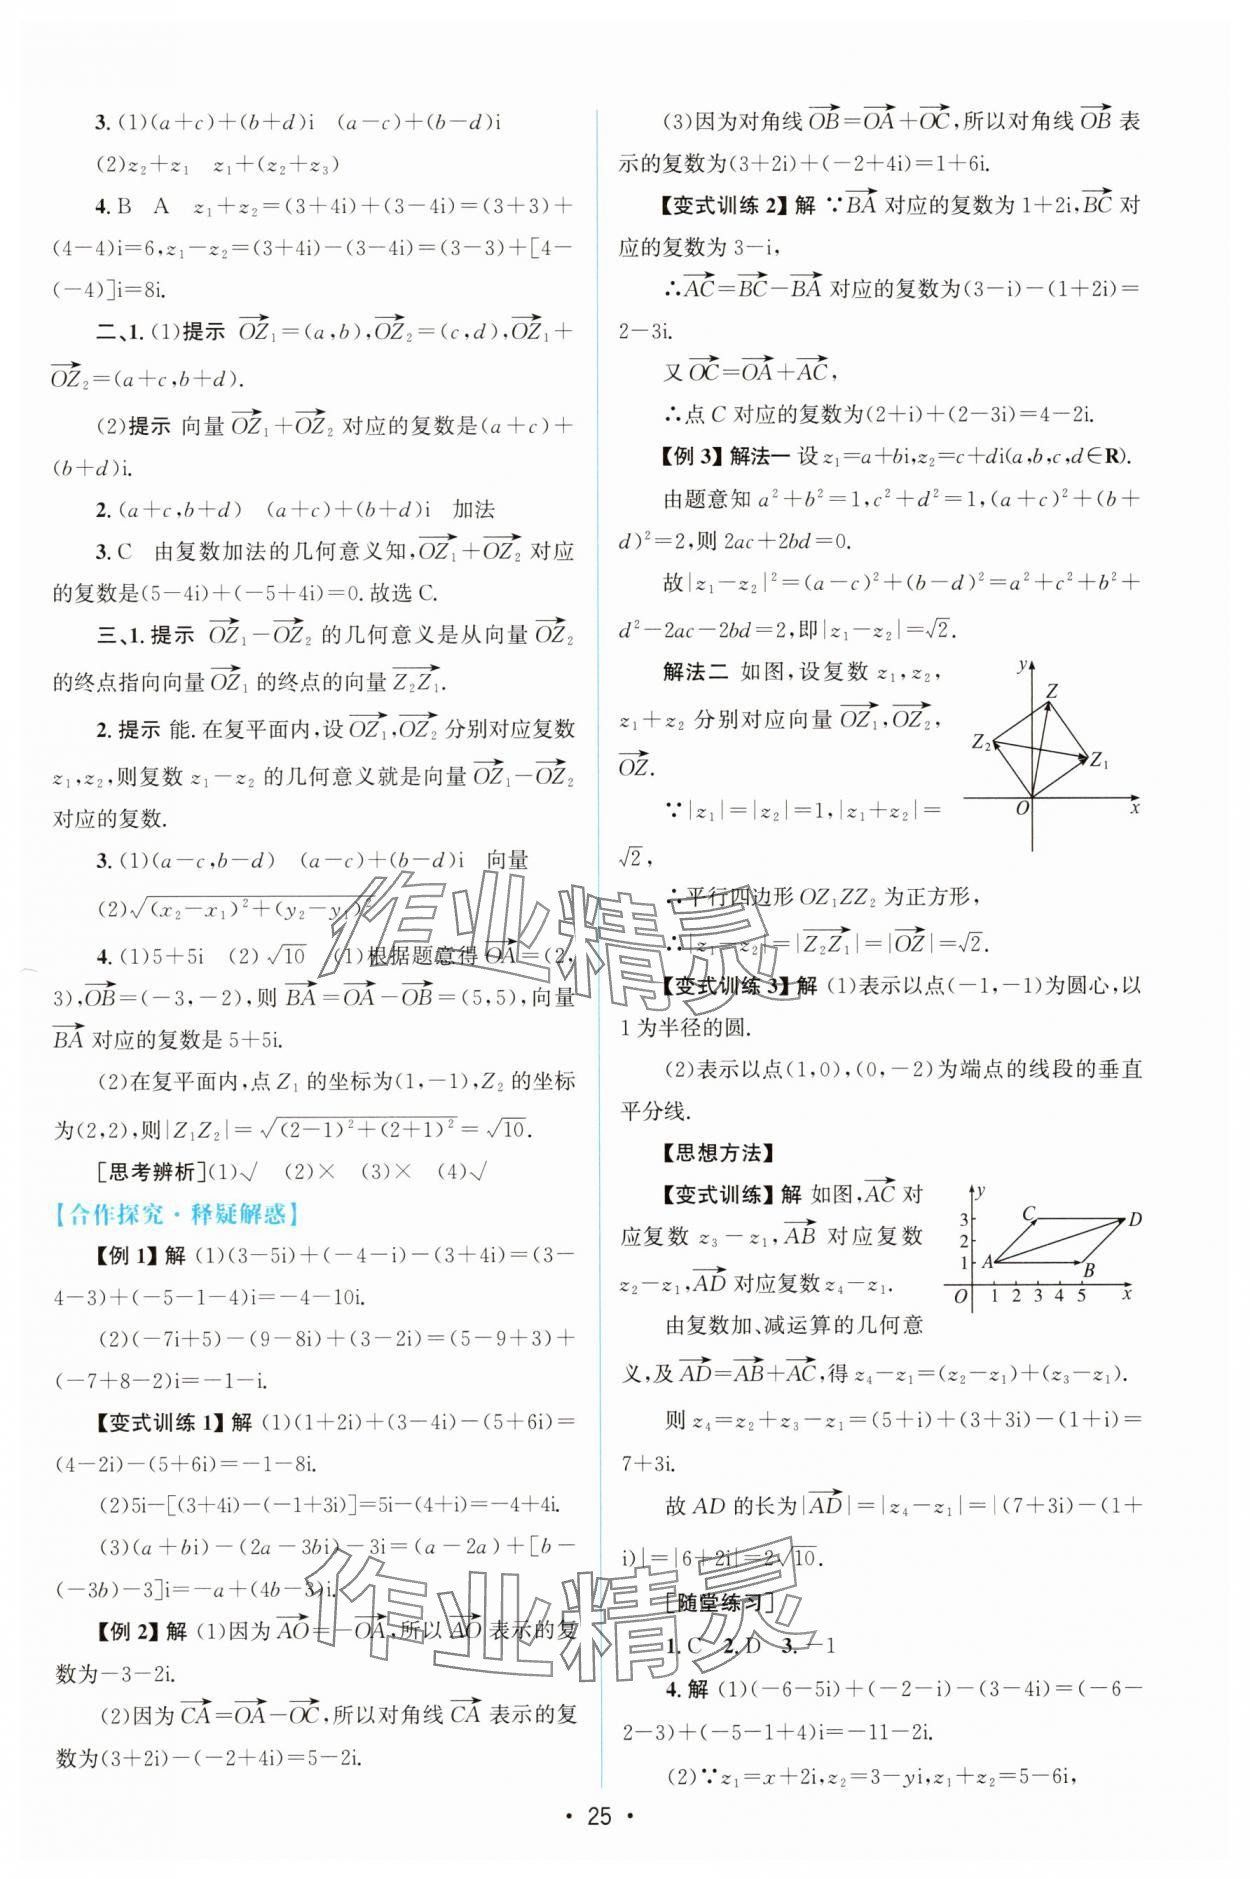 3.(1)(a+c)+(b+d)i  (a-c)+(b-d)i
(2)z₂+z₁  z₁+(z₂+z₃)
4.B  A  z₁+z₂=(3+4i)+(3-4i)=(3+3)+
(4-4)i=6,z₁-z₂=(3+4i)-(3-4i)=(3-3)+[4-
(-4)]i=8i.
二、1.(1)提示  $\overrightarrow{OZ}_1$=(a,b),$\overrightarrow{OZ}_2$=(c,d),$\overrightarrow{OZ}_1$+
$\overrightarrow{OZ}_2$=(a+c,b+d).
(2)提示  向量$\overrightarrow{OZ}_1$+$\overrightarrow{OZ}_2$对应的复数是(a+c)+
(b+d)i.
2.(a+c,b+d)  (a+c)+(b+d)i  加法
3.C  由复数加法的几何意义知,$\overrightarrow{OZ}_1$+$\overrightarrow{OZ}_2$对应
的复数是(5-4i)+(-5+4i)=0.故选C.
三、1.提示  $\overrightarrow{OZ}_1$-$\overrightarrow{OZ}_2$的几何意义是从向量$\overrightarrow{OZ}_2$
的终点指向向量$\overrightarrow{OZ}_1$的终点的向量$\overrightarrow{Z_2Z_1}$.
2.提示  能.在复平面内,设$\overrightarrow{OZ}_1$,$\overrightarrow{OZ}_2$分别对应复数
z₁,z₂,则复数z₁-z₂的几何意义就是向量$\overrightarrow{OZ}_1$-$\overrightarrow{OZ}_2$
对应的复数.
3.(1)(a-c,b-d)  (a-c)+(b-d)i  向量
(2)$\sqrt{(x_2-x_1)^2+(y_2-y_1)^2}$
4.(1)5+5i  (2)$\sqrt{10}$  (1)根据题意得$\overrightarrow{OA}$=(2,
3),$\overrightarrow{OB}$=(-3,-2),则$\overrightarrow{BA}$=$\overrightarrow{OA}$-$\overrightarrow{OB}$=(5,5),向量
$\overrightarrow{BA}$对应的复数是5+5i.
(2)在复平面内,点Z₁的坐标为(1,-1),Z₂的坐标
为(2,2),则|Z₁Z₂|=$\sqrt{(2-1)^2+(2+1)^2}$=$\sqrt{10}$.
[思考辨析](1)√  (2)×  (3)×  (4)√
【合作探究·释疑解惑】
【例1】解  (1)(3-5i)+(-4-i)-(3+4i)=(3-
4-3)+(-5-1-4)i=-4-10i.
(2)(-7i+5)-(9-8i)+(3-2i)=(5-9+3)+
(-7+8-2)i=-1-i.
【变式训练1】解  (1)(1+2i)+(3-4i)-(5+6i)=
(4-2i)-(5+6i)=-1-8i.
(2)5i-[(3+4i)-(-1+3i)]=5i-(4+i)=-4+4i.
(3)(a+bi)-(2a-3bi)-3i=(a-2a)+[b-
(-3b)-3]i=-a+(4b-3)i.
【例2】解  (1)因为$\overrightarrow{AO}$=-$\overrightarrow{OA}$,所以$\overrightarrow{AO}$表示的复
数为-3-2i.
(2)因为$\overrightarrow{CA}$=$\overrightarrow{OA}$-$\overrightarrow{OC}$,所以对角线$\overrightarrow{CA}$表示的复
数为(3+2i)-(-2+4i)=5-2i.
(3)因为对角线$\overrightarrow{OB}$=$\overrightarrow{OA}$+$\overrightarrow{OC}$,所以对角线$\overrightarrow{OB}$表
示的复数为(3+2i)+(-2+4i)=1+6i.
【变式训练2】解  ∵$\overrightarrow{BA}$对应的复数为1+2i,$\overrightarrow{BC}$对
应的复数为3-i,
∴$\overrightarrow{AC}$=$\overrightarrow{BC}$-$\overrightarrow{BA}$对应的复数为(3-i)-(1+2i)=
2-3i.
又$\overrightarrow{OC}$=$\overrightarrow{OA}$+$\overrightarrow{AC}$,
∴点C对应的复数为(2+i)+(2-3i)=4-2i.
【例3】解法一  设z₁=a+bi,z₂=c+di(a,b,c,d∈R).
由题意知a²+b²=1,c²+d²=1,(a+c)²+(b+
d)²=2,则2ac+2bd=0.
故|z₁-z₂|²=(a-c)²+(b-d)²=a²+c²+b²+
d²-2ac-2bd=2,即|z₁-z₂|=$\sqrt{2}$.
解法二  如图,设复数z₁,z₂,
z₁+z₂分别对应向量$\overrightarrow{OZ}_1$,$\overrightarrow{OZ}_2$,
$\overrightarrow{OZ}$.
y
Z
Z₂
Z₁
O
x
∵|z₁|=|z₂|=1,|z₁+z₂|=
$\sqrt{2}$,
∴平行四边形OZ₁ZZ₂为正方形,
∴|z₁-z₂|=|$\overrightarrow{Z_2Z_1}$|=|$\overrightarrow{OZ}$|=$\sqrt{2}$.
【变式训练3】解  (1)表示以点(-1,-1)为圆心,以
1为半径的圆.
(2)表示以点(1,0),(0,-2)为端点的线段的垂直
平分线.
【思想方法】
【变式训练】解  如图,$\overrightarrow{AC}$对
应复数z₃-z₁,$\overrightarrow{AB}$对应复数
z₂-z₁,$\overrightarrow{AD}$对应复数z₄-z₁.
y
3
C
D
2
1
A
B
O 1 2 3 4 5 x
由复数加、减运算的几何意
义,及$\overrightarrow{AD}$=$\overrightarrow{AB}$+$\overrightarrow{AC}$,得z₄-z₁=(z₂-z₁)+(z₃-z₁).
则z₄=z₂+z₃-z₁=(5+i)+(3+3i)-(1+i)=
7+3i.
故AD的长为|$\overrightarrow{AD}$|=|z₄-z₁|=|(7+3i)-(1+
i)|=|6+2i|=2$\sqrt{10}$.
[随堂练习]
1.C  2.D  3.-1
4.解  (1)(-6-5i)+(-2-i)-(3-4i)=(-6-
2-3)+(-5-1+4)i=-11-2i.
(2)∵z₁=x+2i,z₂=3-yi,z₁+z₂=5-6i,
作业精灵
作业精灵
· 25 ·